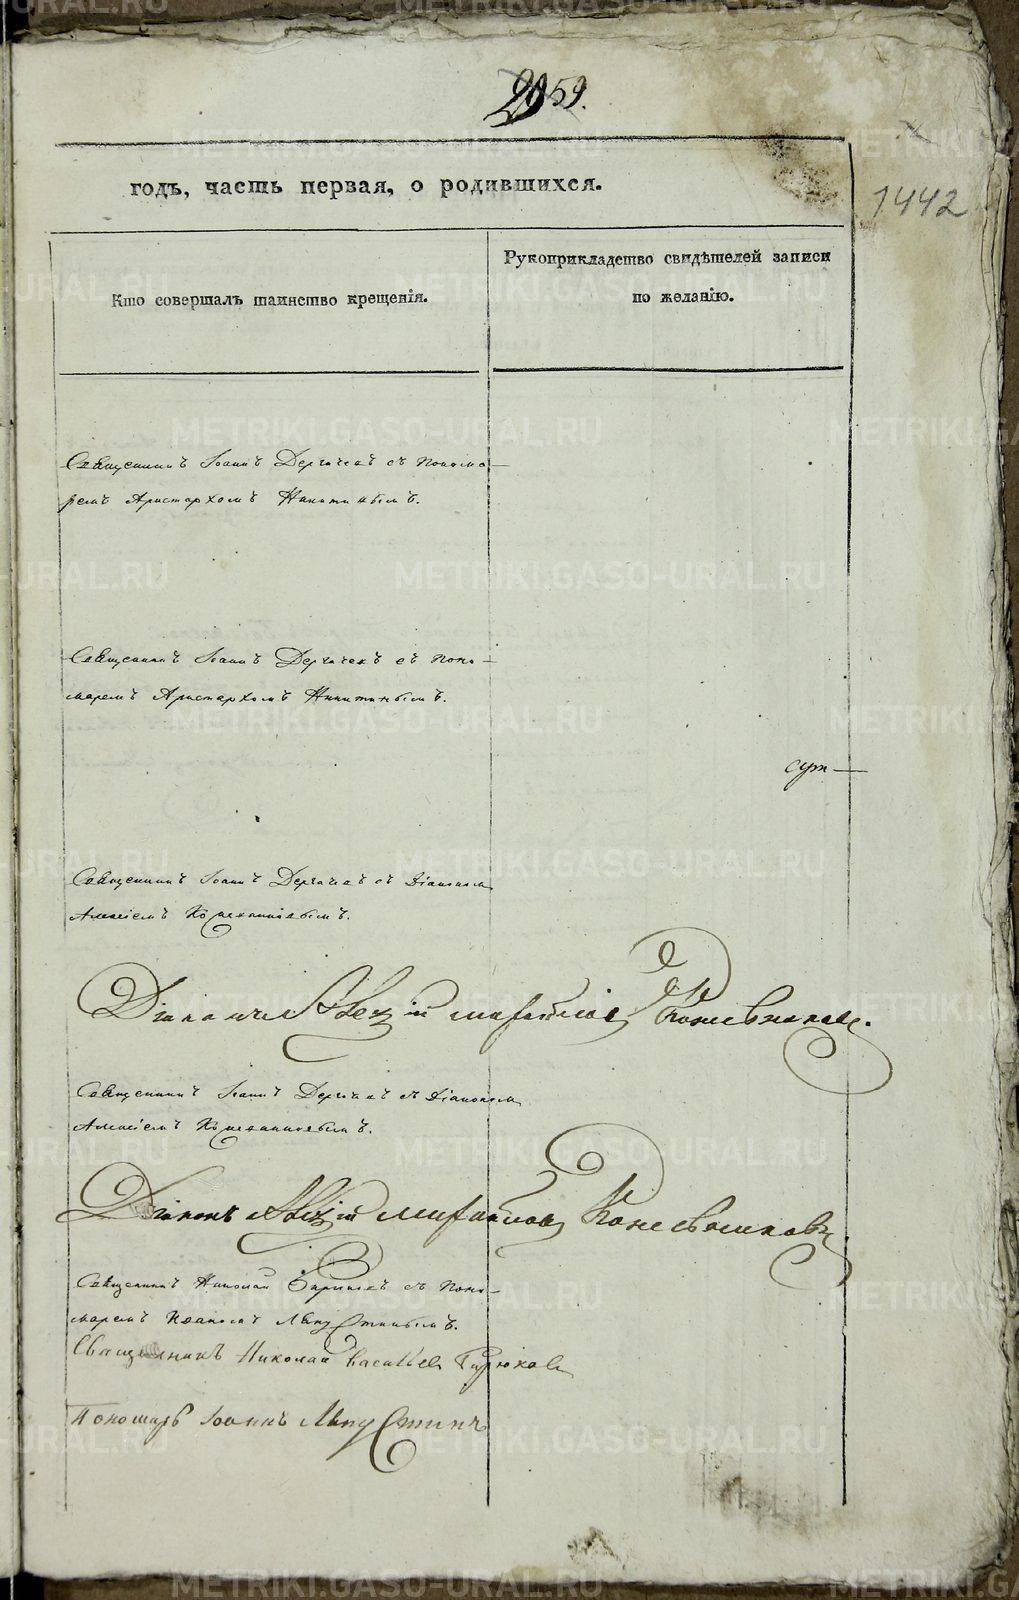 59.
годъ, часть первая, о родившихся.
1442
Кто совершалъ таинство крещенія.
Рукоприкладство свидѣтелей записи
по желанію.
Священникъ Іоаннъ Дергачевъ съ понома-
ремъ Аристархомъ Никитинымъ.
Священникъ Іоаннъ Дергачевъ съ поно-
маремъ Аристархомъ Никитинымъ.
Священникъ Іоаннъ Дергачевъ съ Діакономъ
Алексіемъ
Діаконъ Алексій Михайловъ Кожевниковъ.
Священникъ Іоаннъ Дергачевъ съ Діакономъ
Алексіемъ
Діаконъ Алексій Михайловъ Кожевниковъ
Священникъ Николай Бирюковъ съ поно-
маремъ Іоанномъ
Священникъ Николай Васильевъ Бирюковъ
Пономарь Іоаннъ
METRIKI.GASO-URAL.RU